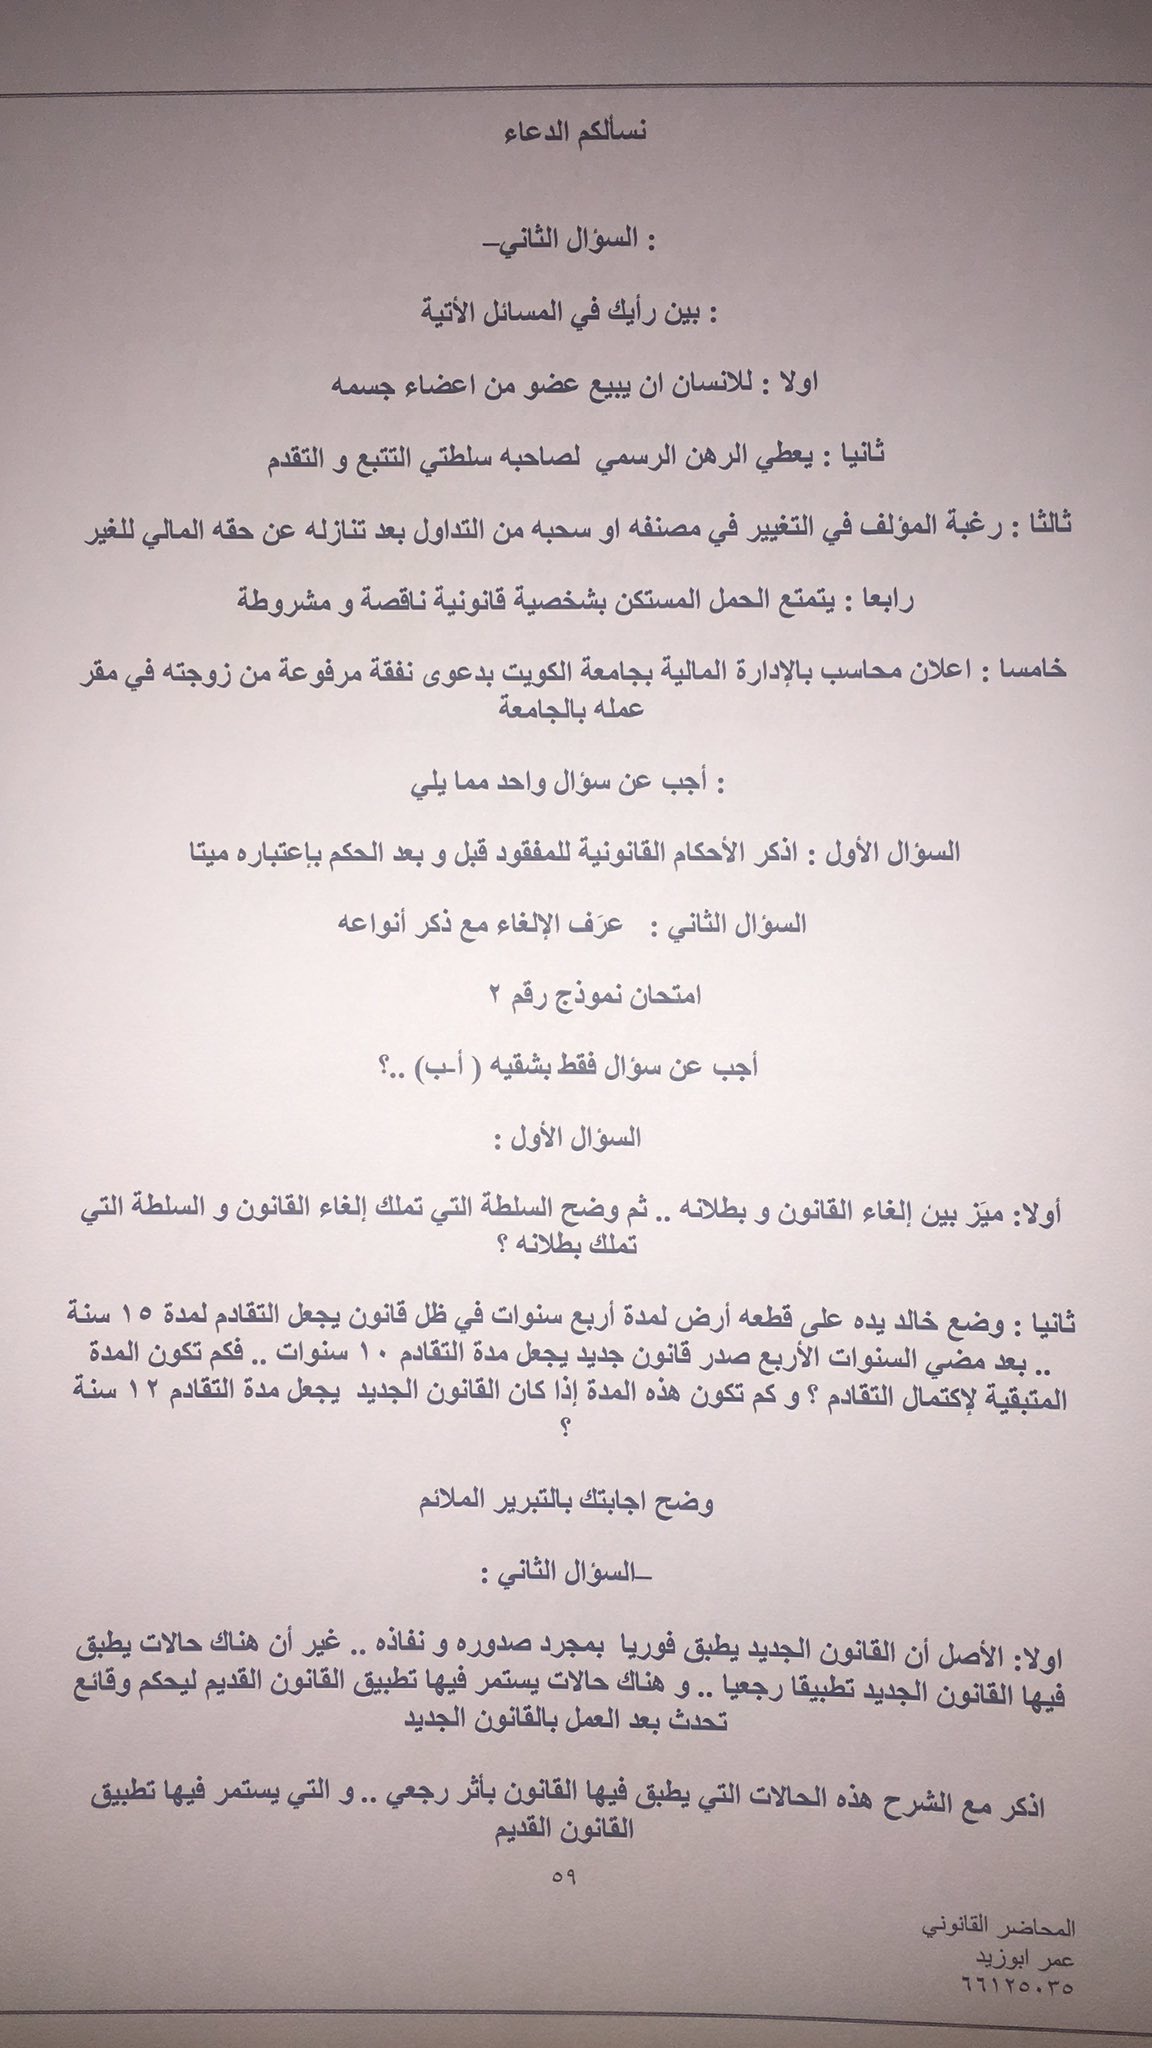 نسألكم الدعاء
: السؤال الثاني–
: بين رأيك في المسائل الأتية
اولا : للانسان ان يبيع عضو من اعضاء جسمه
ثانيا : يعطي الرهن الرسمي لصاحبه سلطتي التتبع و التقدم
ثالثا : رغبة المؤلف في التغيير في مصنفه او سحبه من التداول بعد تنازله عن حقه المالي للغير
رابعا : يتمتع الحمل المستكن بشخصية قانونية ناقصة و مشروطة
خامسا : اعلان محاسب بالإدارة المالية بجامعة الكويت بدعوى نفقة مرفوعة من زوجته في مقر
عمله بالجامعة
: أجب عن سؤال واحد مما يلي
السؤال الأول : اذكر الأحكام القانونية للمفقود قبل و بعد الحكم بإعتباره ميتا
السؤال الثاني : عرَف الإلغاء مع ذكر أنواعه
امتحان نموذج رقم ٢
أجب عن سؤال فقط بشقيه ( أ-ب) ..؟
السؤال الأول :
أولا: ميَز بين إلغاء القانون و بطلانه .. ثم وضح السلطة التي تملك إلغاء القانون و السلطة التي
تملك بطلانه ؟
ثانيا : وضع خالد يده على قطعه أرض لمدة أربع سنوات في ظل قانون يجعل التقادم لمدة ١٥ سنة
.. بعد مضي السنوات الأربع صدر قانون جديد يجعل مدة التقادم ١٠ سنوات .. فكم تكون المدة
المتبقية لإكتمال التقادم ؟ و كم تكون هذه المدة إذا كان القانون الجديد يجعل مدة التقادم ١٢ سنة
؟
وضح اجابتك بالتبرير الملائم
–السؤال الثاني :
اولا: الأصل أن القانون الجديد يطبق فوريا بمجرد صدوره و نفاذه .. غير أن هناك حالات يطبق
فيها القانون الجديد تطبيقا رجعيا .. و هناك حالات يستمر فيها تطبيق القانون القديم ليحكم وقائع
تحدث بعد العمل بالقانون الجديد
اذكر مع الشرح هذه الحالات التي يطبق فيها القانون بأثر رجعي .. و التي يستمر فيها تطبيق
القانون القديم
٥٩
المحاضر القانوني
عمر ابوزيد
٦٦١٢٥٠٣٥